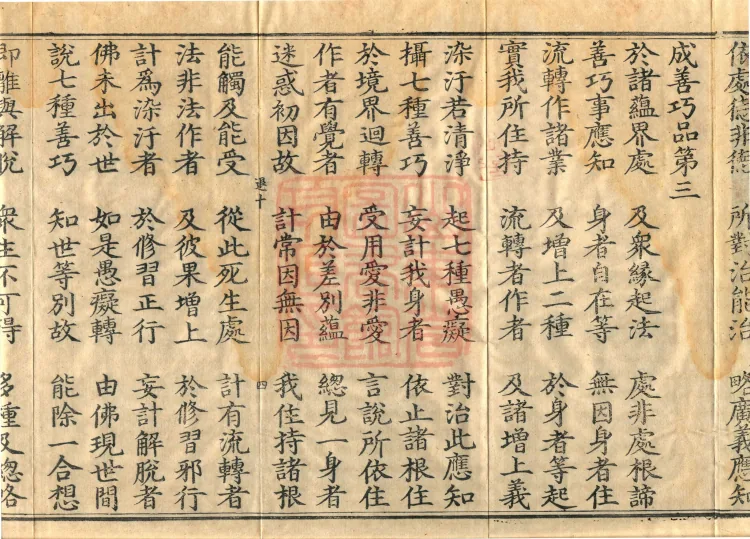 依處德非德 所對治能治 略廣義應知
成善巧品第三
於諸蘊界處 及衆緣起法 處非處根諦
善巧事應知 身者自在等 無因身者住
流轉作諸業 及增上二種 於身者等起
實我所住持 流轉者作者 及諸增上義
染汙若清淨 起七種愚癡 對治此應知
攝七種善巧 妄計我身者 依止諸根住
於境界迴轉 受用愛非愛 言說所依住
作者有覺者 由於差別蘊 總見一身者
迷惑初因故 計常因無因 我住持諸根
退十 四
能觸及能受 從此死生處 計有流轉者
法非法作者 及彼果增上 於修習邪行
計爲染汙者 於修習正行 妄計解脫者
佛未出於世 如是愚癡轉 由佛現世間
說七種善巧 知世等別故 能除一合想
即離與解脫 衆生不可得 多種及總略